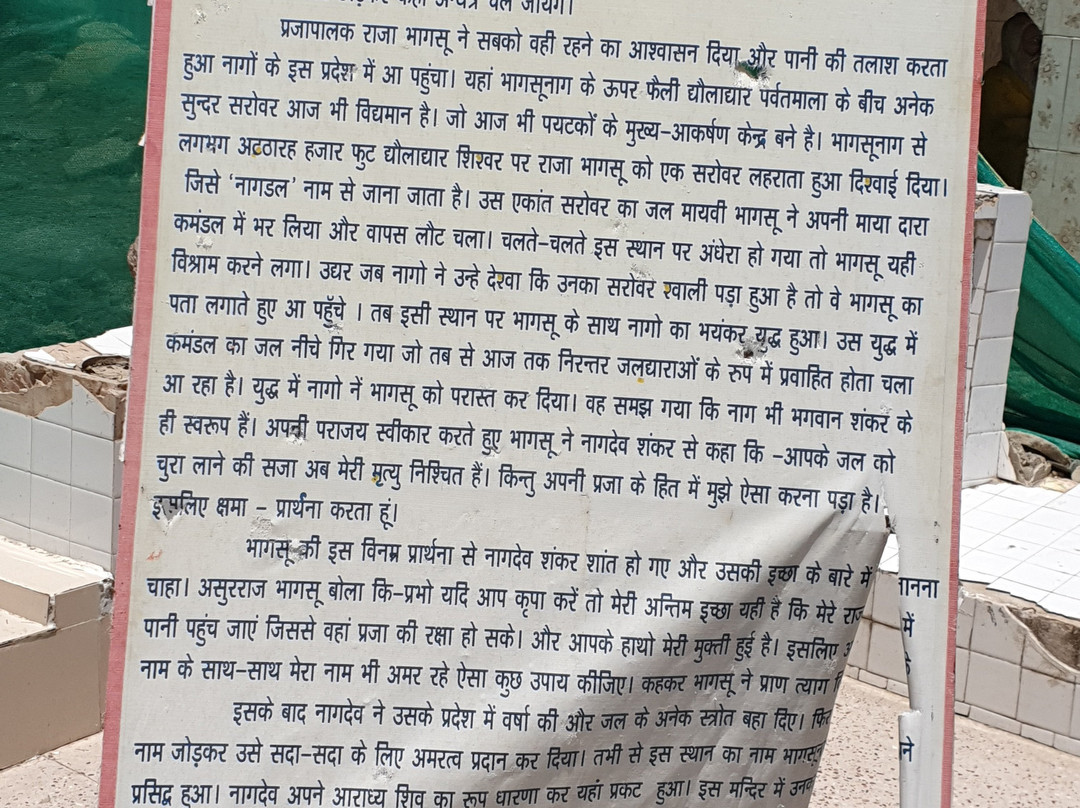 चले जायेंगे।
प्रजापालक राजा भागसू ने सबको वही रहने का आश्वासन दिया और पानी की तलाश करता
हुआ नागों के इस प्रदेश में आ पहुंचा। यहां भागसूनाग के ऊपर फैली द्यौलाद्यार पर्वतमाला के बीच अनेक
सुन्दर सरोवर आज भी विद्यमान है। जो आज भी पयटकों के मुख्य-आकर्षण केन्द्र बने है। भागसूनाग से
लगभग अटठारह हजार फुट द्यौलाद्यार शिखर पर राजा भागसू को एक सरोवर लहराता हुआ दिखाई दिया।
जिसे 'नागडल' नाम से जाना जाता है। उस एकांत सरोवर का जल मायवी भागसू ने अपनी माया दारा
कमंडल में भर लिया और वापस लौट चला। चलते-चलते इस स्थान पर अंधेरा हो गया तो भागसू यही
विश्राम करने लगा। उद्यर जब नागो ने उन्हे देखा कि उनका सरोवर खाली पड़ा हुआ है तो वे भागसू का
पता लगाते हुए आ पहुँचे । तब इसी स्थान पर भागसू के साथ नागो का भयंकर युद्ध हुआ। उस युद्ध में
कमंडल का जल नीचे गिर गया जो तब से आज तक निरन्तर जलद्याराओं के रुप में प्रवाहित होता चला
आ रहा है। युद्ध में नागो नें भागसू को परास्त कर दिया। वह समझ गया कि नाग भी भगवान शंकर के
ही स्वरूप हैं। अपनी पराजय स्वीकार करते हुए भागसू ने नागदेव शंकर से कहा कि -आपके जल को
चुरा लाने की सजा अब मेरी मृत्यु निश्चित हैं। किन्तु अपनी प्रजा के हित में मुझे ऐसा करना पड़ा है।
इसलिए क्षमा - प्रार्थना करता हूं।
भागसू की इस विनम्र प्रार्थना से नागदेव शंकर शांत हो गए और उसकी इच्छा के बारे में जानना
चाहा। असुरराज भागसू बोला कि-प्रभो यदि आप कृपा करें तो मेरी अन्तिम इच्छा यही है कि मेरे में
पानी पहुंच जाएं जिससे वहां प्रजा की रक्षा हो सके। और आपके हाथो मेरी मुक्ती हुई है। इसलिए
नाम के साथ-साथ मेरा नाम भी अमर रहे ऐसा कुछ उपाय कीजिए। कहकर भागसू ने प्राण त्याग
इसके बाद नागदेव ने उसके प्रदेश में वर्षा की और जल के अनेक स्त्रोत बहा दिए।
नाम जोड़कर उसे सदा-सदा के लिए अमरत्व प्रदान कर दिया। तभी से इस स्थान का नाम
प्रसिद्व हुआ। नागदेव अपने आराध्य शिव का रूप धारणा कर यहां प्रकट हुआ। इस मन्दिर में